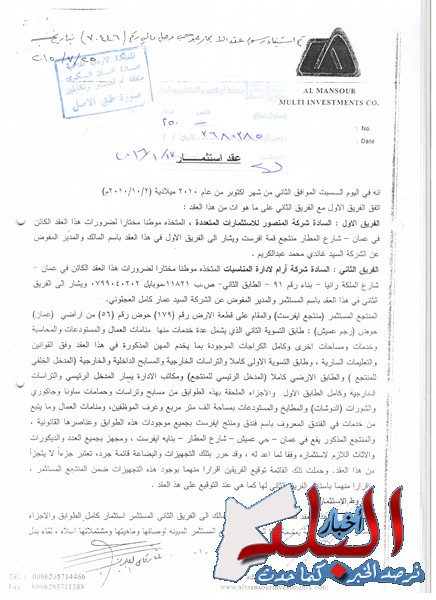 AL MANSOUR
MULTI INVESTMENTS CO.
No:
Date
صورة طبق الأصل
عقد استثمـــــــار
انه في اليوم السبت الموافق الثاني من شهر اكتوبر من عام ٢٠١٠ ميلادية (٢٠١٠/١٠/٢م)
اتفق الفريق الاول مع الفريق الثاني على ما هو ات من هذا العقد :
الفريق الاول : السادة شركة المنصور للاستثمارات المتعددة ، المتخذه موطنا مختارا لضرورات هذا العقد الكائن
في عمان – شارع المطار منتجع قمة افرست ويشار الى الفريق الاول في هذا العقد باسم المالك والمدير المفوض
عن الشركة السيد غاندي محمد عبدالكريم .
الفريق الثاني : السادة شركة أرام لادارة المناسبات المتخذه موطنا مختارا لضرورات هذا العقد الكائن في عمان – شارع
الملكة رانيا – بناء رقم ٩١ – الطابق الثاني– ص.ب ١١٨٢١ موبايل ٠٧٩٩٠٤٠٢٠٢ ويشار الى الفريق
الثاني في هذا العقد باسم المستثمر والمدير المفوض عن الشركة السيد عمار كامل العجلوني.
المنتجع المستثمر (منتجع ايفرست) والمقام على قطعة الارض رقم (١٧٩) حوض رقم (٥٦) من اراضي (عمان)
حوض (رجم عميش) : طابق التسوية الثاني الذي يشمل عدة خدمات منها منامات العمال والمستودعات والمحاسبة
وخدمات ومساحات اخرى وكامل الكراجات الموجودة بما يخدم المهن المذكورة في هذا العقد وفق القوانين
والتعليمات السارية ، وطابق التسوية الاولى كاملا والتراسات الخارجية والمسابح الداخلية والخارجية (المدخل الخلفي
للمنتجع ) والطابق الارضي كاملا (المدخل الرئيسي للمنتجع) ومكاتب الادارة يسار المدخل الرئيسي والتراسات
الخارجية وكامل الطابق الاول والاجزاء الملحقة بهذه الطوابق من مسابح وتراسات وحمامات ساونا وجاكوزي
والشورات (الدوشات) والمطابخ والمستودعات بمساحة الف متر مربع وغرف الموظفين، ومنامات العمال وما يتبع
من خدمات في الفندق المعروف باسم فندق ومنتجع ايفرست بجميع موجودات هذه الطوابق وعناصرها القانونية ،
والمنتجع المذكور يقع في عمان – حي عميش – شارع المطار – بنايه ايفرست ، ومجهز بجميع العدد والديكورات
والاثاث اللازم لاستثماره وفقا لما اعد له ، وقد حرر بتلك التجهيزات والبضاعة قائمة جرد، تعتبر جزءاً لا يتجزأ
من هذا العقد. وحملت تلك القائمة توقيع الفريقين اقرارا منهما بوجود هذه التجهيزات ضمن المنتجع المستثمر ،
واقرارا منهما باستلام الفريق الثاني لها كما هي عند التوقيع على هذ العقد .
شروط الاستثمار
الى الفريق الثاني المستثمر استثمار كامل الطوابق والاجزاء
المستثمر المبينه أوصافها وماهيتها ومشتملاتها
أخبار
البلد
نرصد الخبر كما حدث
Tel : 0096265714466